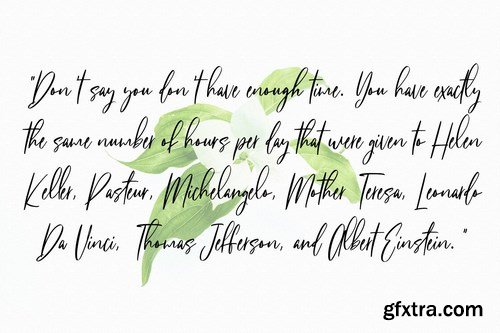 "Don't say you don't have enough time. You have exactly
the same number of hours per day that were given to Helen
Keller, Pasteur, Michelangelo, Mother Teresa, Leonardo
Da Vinci, Thomas Jefferson, and Albert Einstein."
gfxtra.com